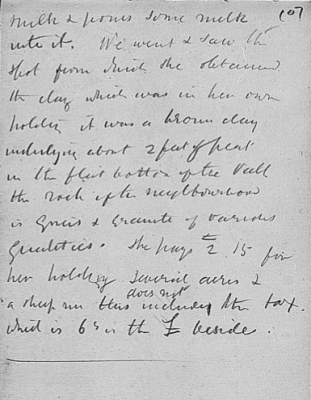 107
milk & pours some milk
into it. We went & saw the
spot from which she obtained
the clay which was in her own
holding it was a brown clay
underlying about 2 feet of peat
in the flat bottom of the Vall
the rock of the neighbourhood
is Gneis & Granite of various
qualities. She pays £2.15 for
her holding several acres &
does not
a sheep run this includes the tax.
which is 6s in the £ beside.